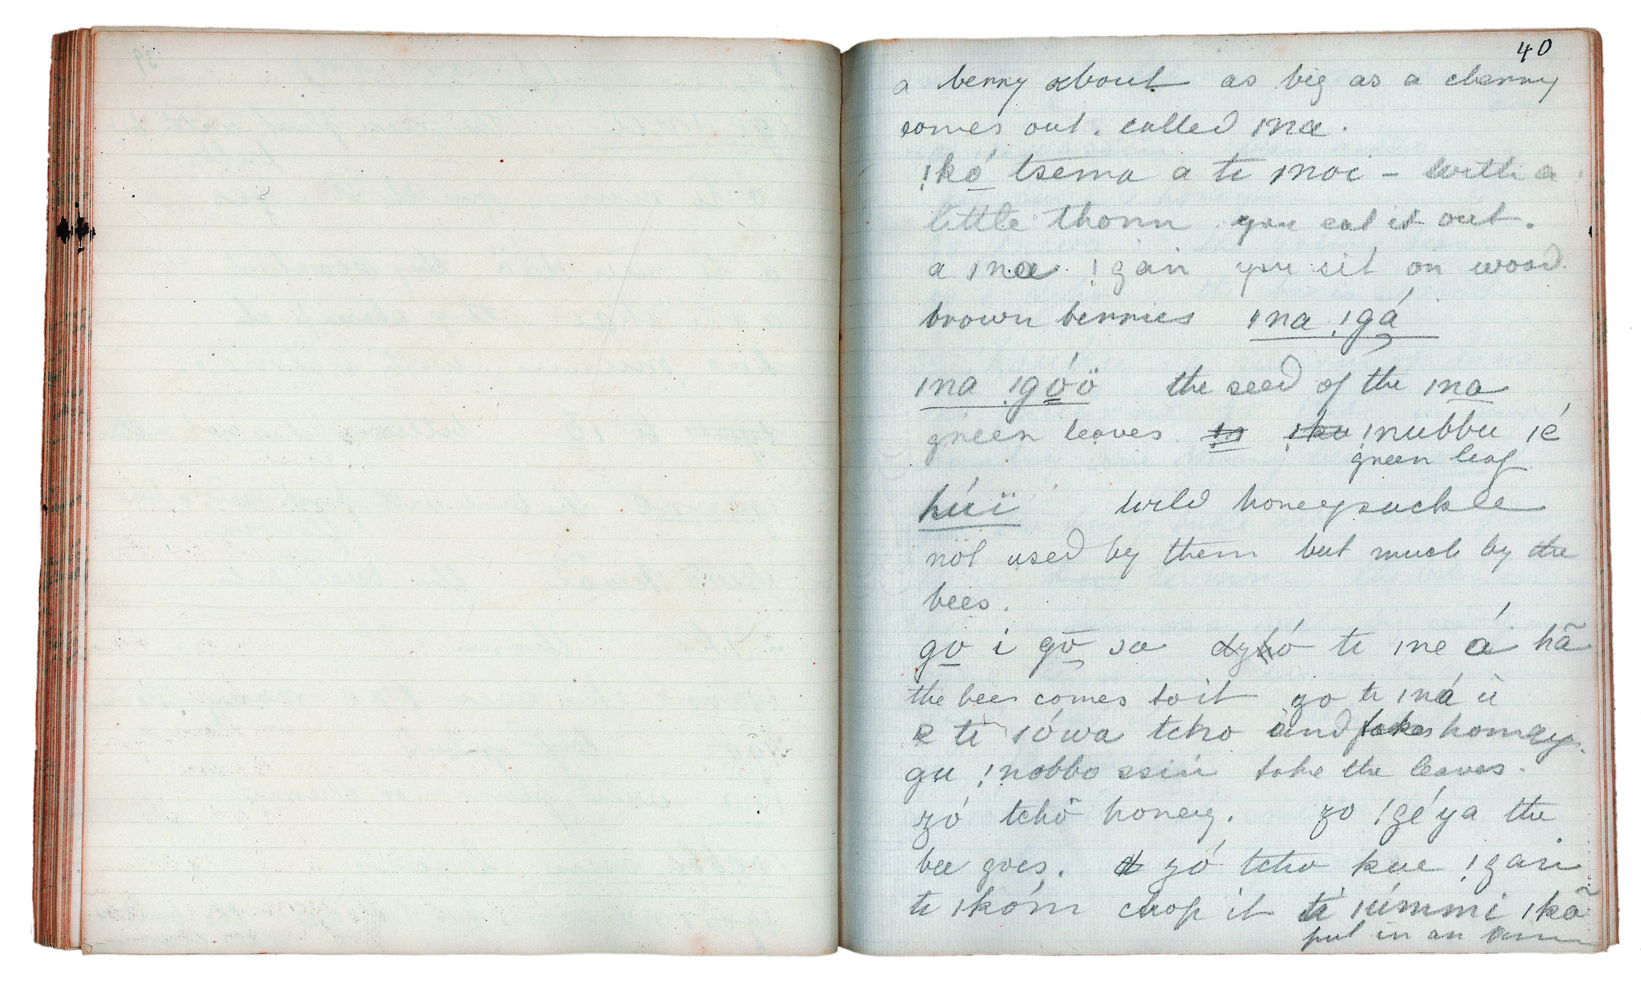 40
a berry about as big as a cherry
comes out. called ına.
!kó tsema a te ınoi – with a
little thorn you eat it out.
a ına !gan you sit on wood.
brown berries ına !gá
ına !góö the seed of the ına
green leaves !nubbu ıé
green leaf
kúï wild honeysuckle
not used by them but much by the
bees.
go i gō sa te ıne á hã
the bees comes to it zo te ıná ù
e tè ıówa tcho and takes honey
gu !nobbo ssin take the leaves.
zó tchõ honey. zo !géya the
bee goes. zó tcho kue !gan
te ıkóm chop it tè ıúmmi ıkã
put in an